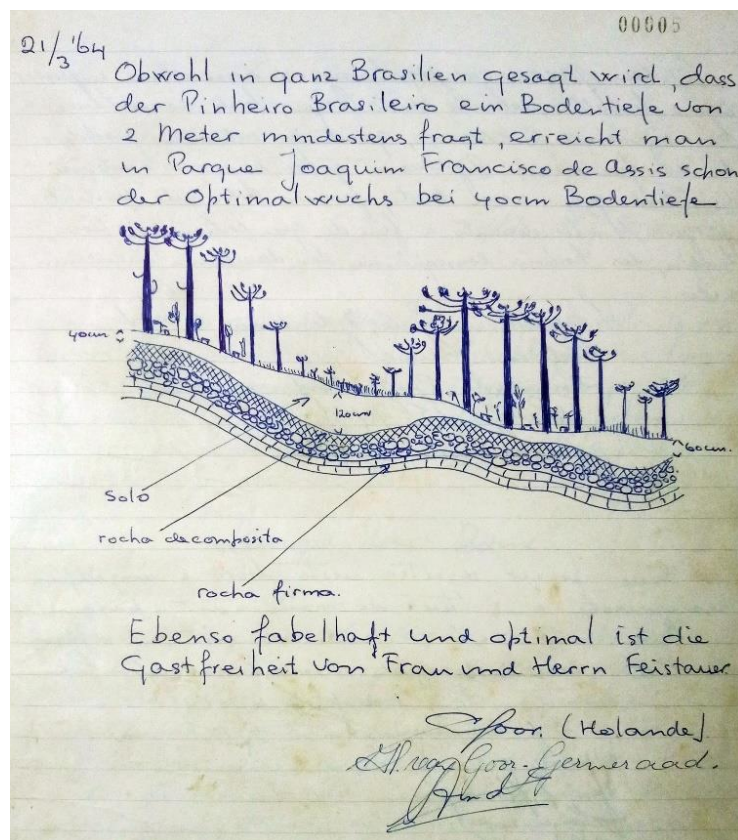 00005
21/3 '64
Obwohl in ganz Brasilien gesagt wird, dass
der Pinheiro Brasileiro ein Bodentiefe von
2 Meter mindestens fragt, erreicht man
in Parque Joaquim Francisco de Assis schon
der Optimalwuchs bei 40cm Bodentiefe
40cm
120cm
60cm.
Solo
rocha decomposita
rocha firma.
Ebenso fabelhaft und optimal ist die
Gastfreiheit von Frau und Herrn Feistauer.
Goor. (Holande)
van Goor-Germeraad.